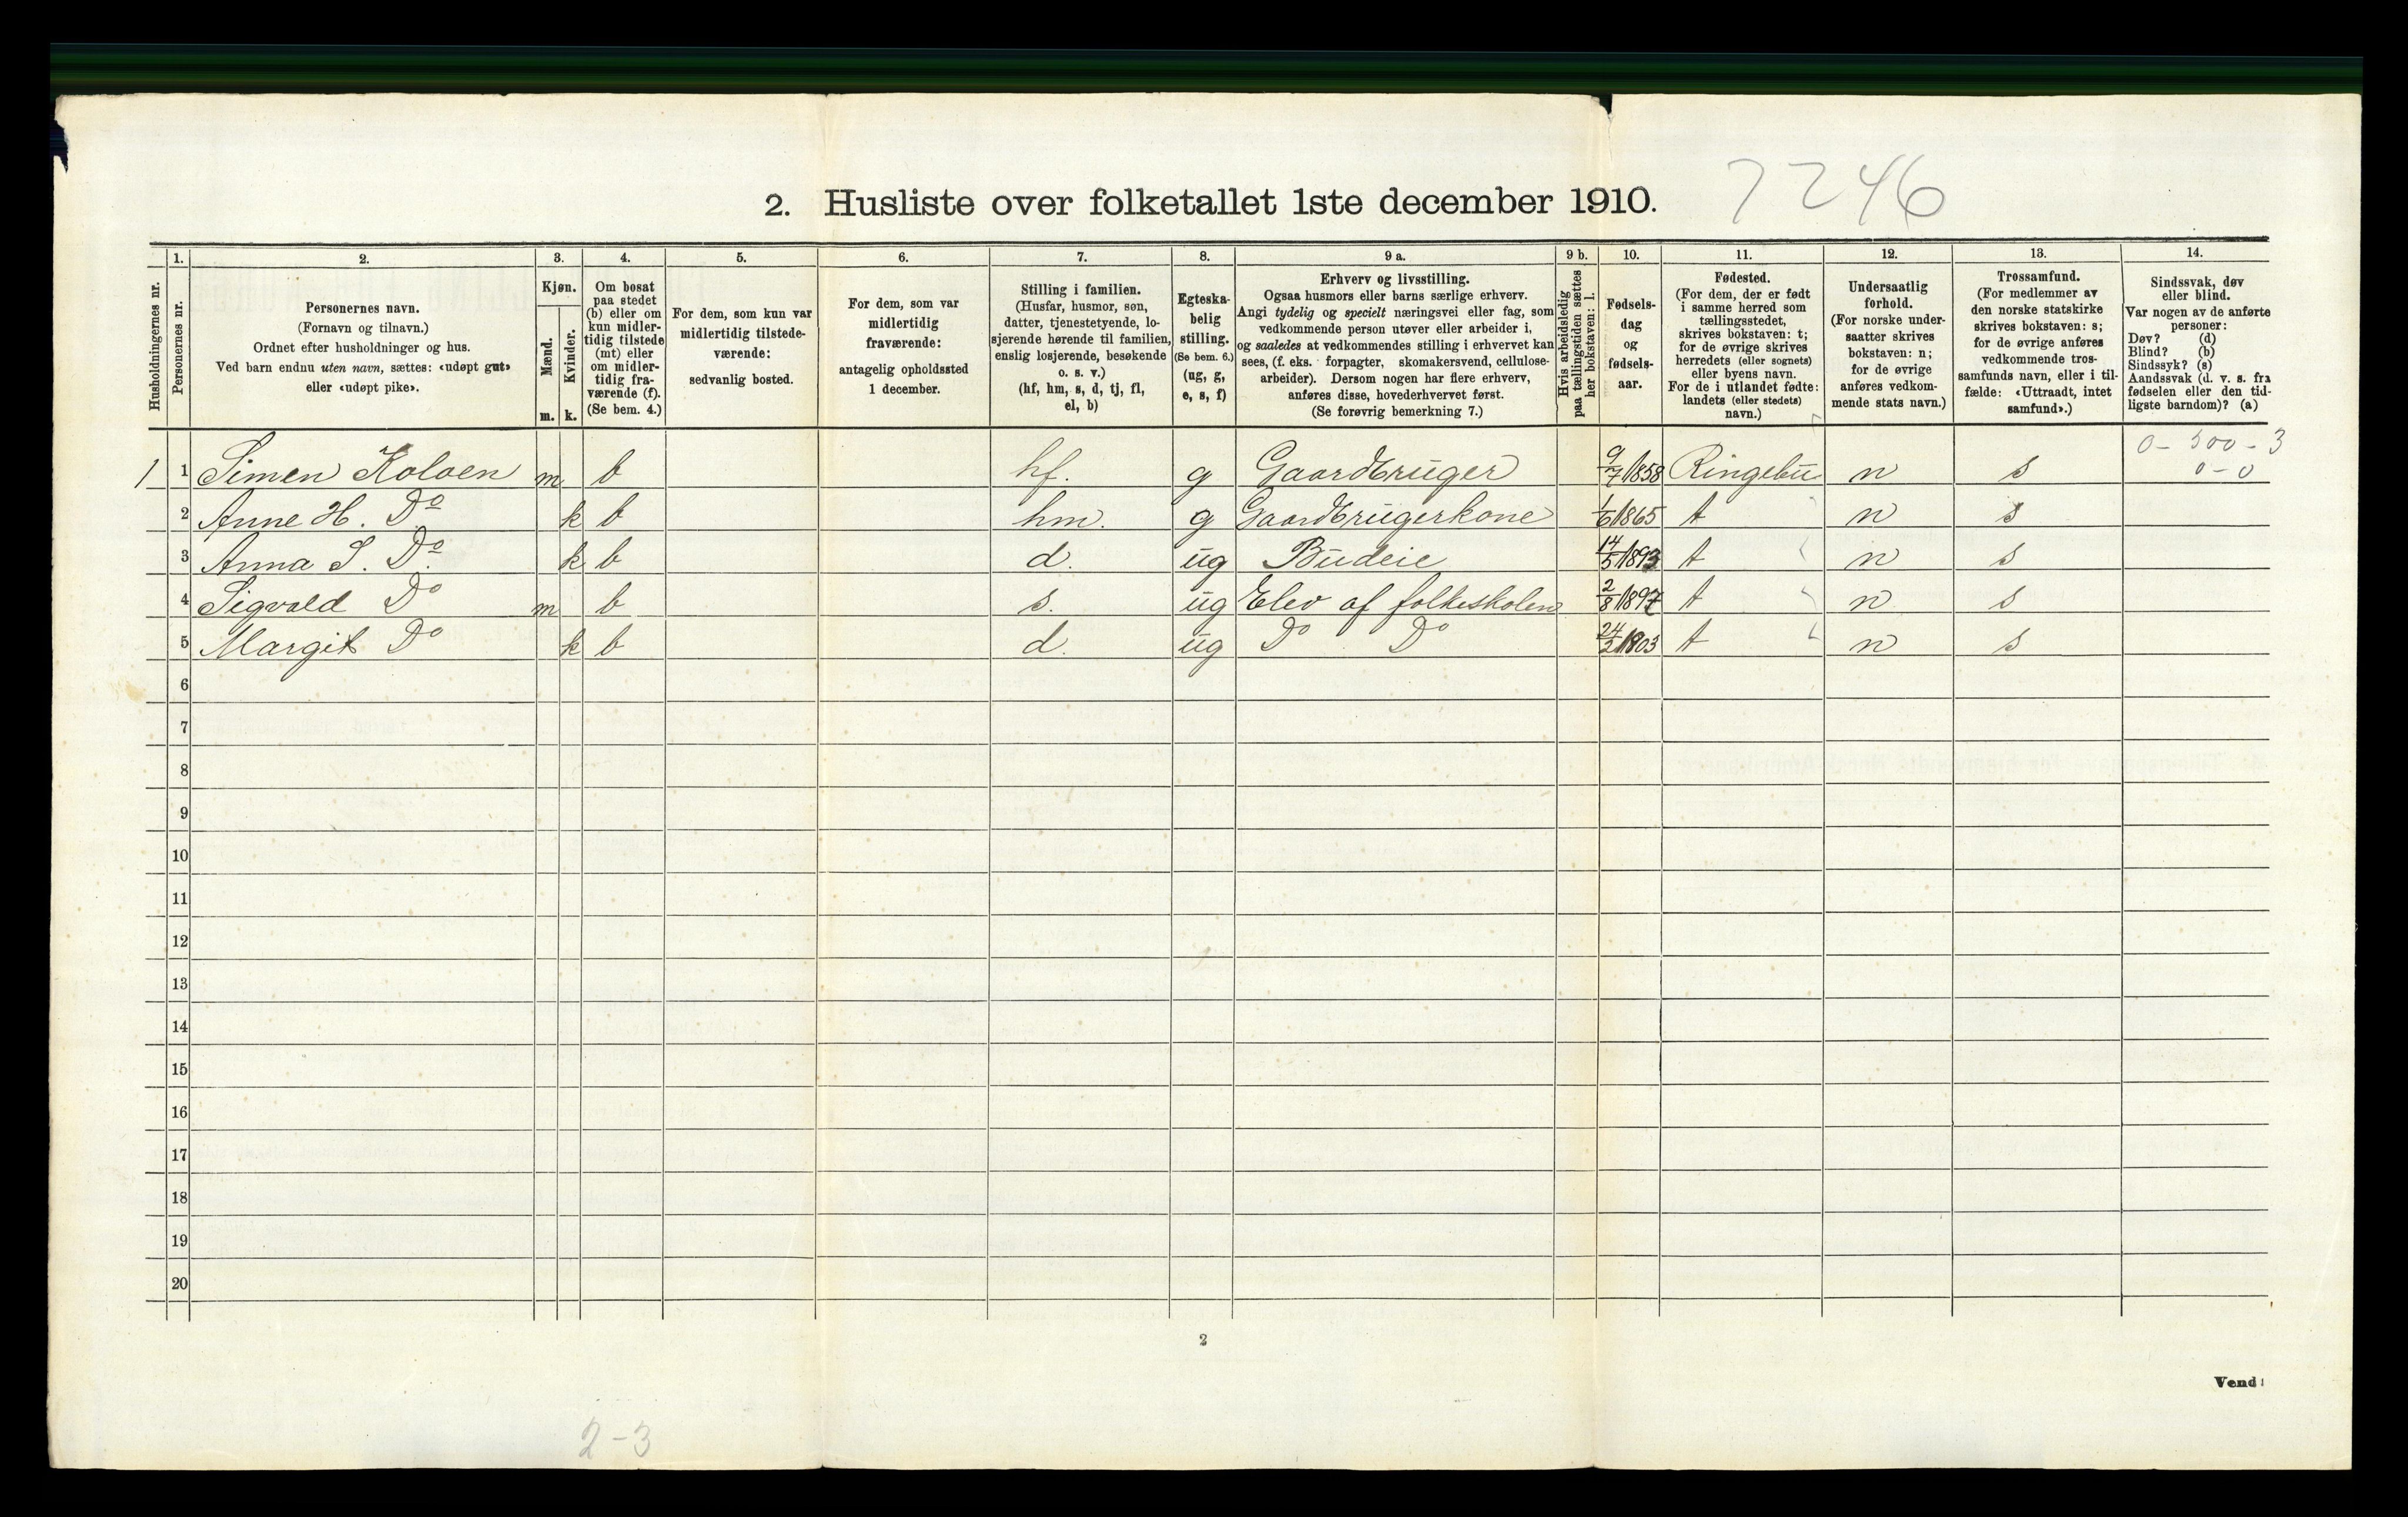 2. Husliste over folketallet 1ste december 1910. 7246
Husholdningernes nr.
1. Personernes nr.
2. Personernes navn.
(Fornavn og tilnavn.)
Ordnet efter husholdninger og hus.
Ved barn endnu uten navn, sættes: «udøpt gut»
eller «udøpt pike».
3. Kjøn.
Mænd. m.
Kvinder. k.
4. Om bosat
paa stedet
(b) eller om
kun midler-
tidig tilstede
(mt) eller
om midler-
tidig fra-
værende (f).
(Se bem. 4.)
5. For dem, som kun var
midlertidig tilstede-
værende:
sedvanlig bosted.
6. For dem, som var
midlertidig
fraværende:
antagelig opholdssted
1 december.
7. Stilling i familien.
(Husfar, husmor, søn,
datter, tjenestetyende, lo-
sjerende hørende til familien,
enslig losjerende, besøkende
o. s. v.)
(hf, hm, s, d, tj, fl,
el, b)
8. Egteska-
belig
stilling.
(Se bem. 6.)
(ug, g,
e, s, f)
9 a. Erhverv og livsstilling.
Ogsaa husmors eller barns særlige erhverv.
Angi tydelig og specielt næringsvei eller fag, som
vedkommende person utøver eller arbeider i,
og saaledes at vedkommendes stilling i erhvervet kan
sees, (f. eks. forpagter, skomakersvend, cellulose-
arbeider). Dersom nogen har flere erhverv,
anføres disse, hovederhvervet først.
(Se forøvrig bemerkning 7.)
9 b. Hvis arbeidsledig
paa tællingstiden sættes
her bokstaven: l.
10. Fødsels-
dag
og
fødsels-
aar.
11. Fødested.
(For dem, der er født
i samme herred som
tællingsstedet,
skrives bokstaven: t;
for de øvrige skrives
herredets (eller sognets)
eller byens navn.
For de i utlandet fødte:
landets (eller stedets)
navn.)
12. Undersaatlig
forhold.
(For norske under-
saatter skrives
bokstaven: n;
for de øvrige
anføres vedkom-
mende stats navn.)
13. Trossamfund.
(For medlemmer av
den norske statskirke
skrives bokstaven: s;
for de øvrige anføres
vedkommende tros-
samfunds navn, eller i til-
fælde: «Uttraadt, intet
samfund».)
14. Sindssvak, døv
eller blind.
Var nogen av de anførte
personer:
Døv? (d)
Blind? (b)
Sindssyk? (s)
Aandssvak (d. v. s. fra
fødselen eller den tid-
ligste barndom)? (a)
0 - 500 - 3
1 1 Simen Koloen m b hf. g Gaardbruger 9/7 1858 Ringebu n s 0 - 0
2 Anne H. Do k b hm. g Gaardbrugerkone 1/6 1865 t n s
3 Anna S. Do k b d. ug Budeie 14/5 1893 t n s
4 Sigvald Do m b s. ug Elev af folkeskolen 2/8 1897 t n s
5 Margit Do k b d. ug Do Do 24/2 1903 t n s
6
7
8
9
10
11
12
13
14
15
16
17
18
19
20
2
Vend!
2-3